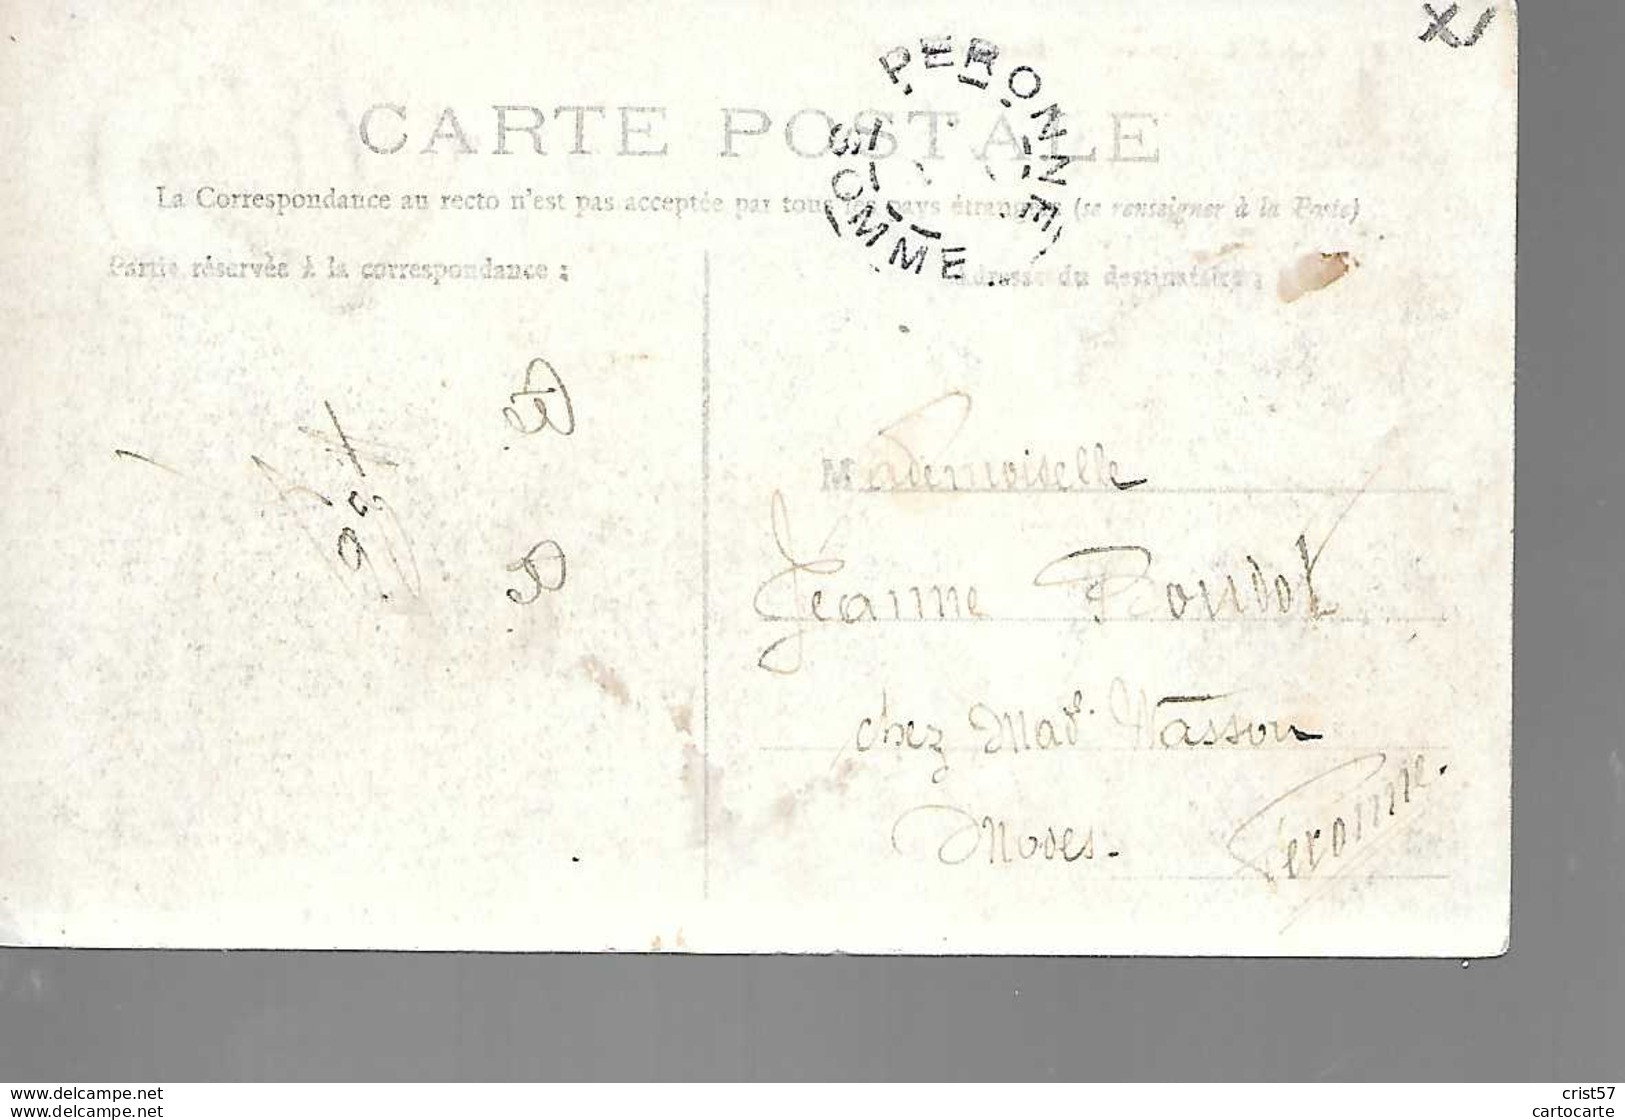 PERONNE
SOMME
CARTE POSTALE
La Correspondance au recto n'est pas acceptée par tous les pays étrangers (se renseigner à la Poste)
Partie réservée à la correspondance :
Adresse du destinataire :
Mademoiselle
Jeanne Roudot
chez Mad. Masson
Modes.
Péronne.
www.delcampe.net
crist57
cartocarte